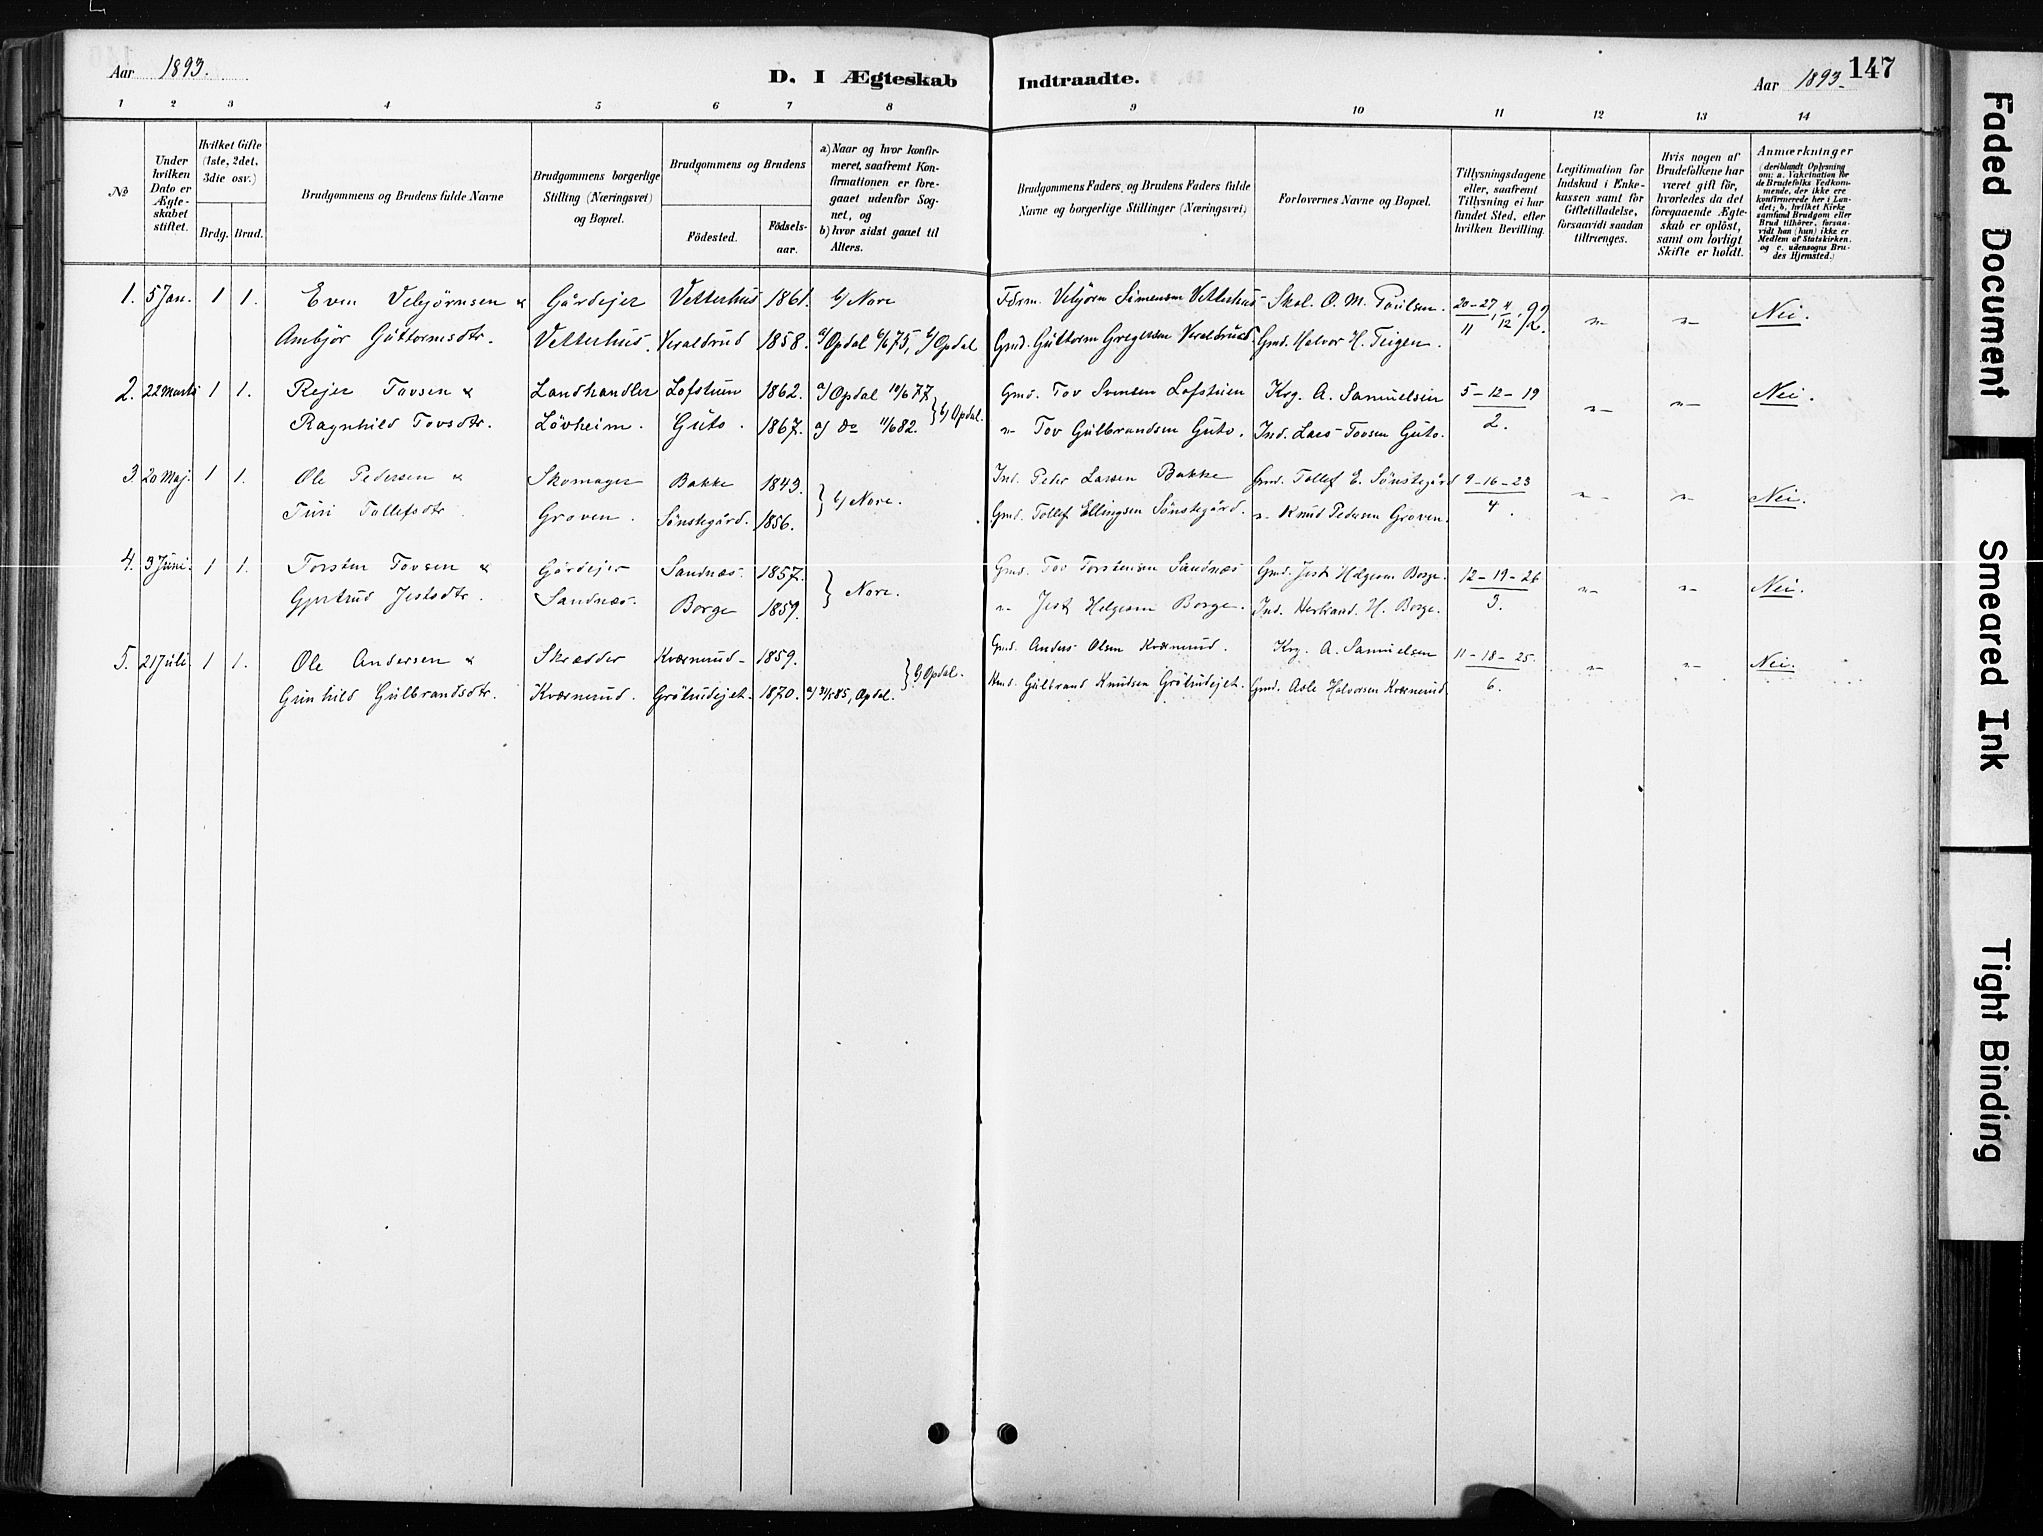 Aar 1893.
D. I Ægteskab Indtraadte.
Aar 1893.
147
1 2 3 4 5 6 7 8 9 10 11 12 13 14
№
Under hvilken Dato er Ægteskabet stiftet.
Hvilket Gifte (1ste, 2det, 3die osv.)
Brdg. Brud.
Brudgommens og Brudens fulde Navne
Brudgommens borgerlige Stilling (Næringsvei) og Bopæl.
Brudgommens og Brudens
Födested.
Födsels-aar.
a) Naar og hvor konfirmeret, saafremt Konfirmationen er foregaaet udenfor Sognet, og
b) hvor sidst gaaet til Alters.
Brudgommens Faders, og Brudens Faders fulde Navne og borgerlige Stillinger (Næringsvei)
Forlovernes Navne og Bopæl.
Tillysningsdagene eller, saafremt Tillysning ei har fundet Sted, efter hvilken Bevilling.
Legitimation for Indskud i Enkekassen samt for Giftetilladelse, forsaavidt saadan tiltrænges.
Hvis nogen af Brudefolkene har været gift för, hvorledes da det foregaaende Ægteskab er oplöst, samt om lovligt Skifte er holdt.
Anmærkninger
(deriblandt Oplysning om: a. Vakcination for de Brudefolks Vedkommende, der ikke ere konfirmerede her i Landet; b. hvilket Kirkesamfund Brudgom eller Brud tilhører, forsaavidt han (hun) ikke er Medlem af Statskirken, og c. udensogns Brudes Hjemsted.)
1. 5 Jan. 1 1. Even Vebjörnsen & Gårdejer Vetterhus 1861. b/ Nore Form. Vebjörn Simensen Vetterhus Skol. O. M. Paulsen. 20-27/11, 4/12 92. " " Nei.
Ambjör Guttormsdtr. Vetterhus. Veraldrud 1858. a/ Opdal 6/6 75, b/ Opdal Gmd. Guttorm Gregersen Veraldrud Gmd. Halvor H. Teigen.
2. 22 Marts 1 1. Rejer Tovsen & Landhandler Lofstuen 1862. a/ Opdal 10/6 77 } b/ Opdal. Gmd. Tov Svensen Lofstuen Krg. A. Samuelsen 5-12-19 " " Nei.
Ragnhild Tovsdtr. Lövheim. Guto. 1867. a/ do 11/6 82. " Tov Gulbrandsen Guto. Ind. Lars Tovsen Guto. 2.
3. 20 Maj. 1 1. Ole Pedersen & Skomager Bakke 1843. } b/ Nore. Ind. Peder Larsen Bakke Gmd. Tollef E. Sönstegård 9-16-23 " " Nei.
Turi Tollefsdtr. Groven. Sönstegård. 1856. Gmd. Tollef Ellingsen Sönstegård. " Knud Pedersen Groven. 4.
4. 3 Juni. 1 1. Torsten Tovsen & Gårdejer Sandnæs. 1857. } Nore. Gmd. Tov Torstensen Sandnæs Gmd. Jest Helgesen Borge. 12-19-26 " " Nei.
Gjertrud Jestsdtr. Sandnæs. Borge 1859. " Jest Helgesen Borge. Ind. Herbrand H. Borge. 3.
5. 21 Juli. 1 1. Ole Andersen & Skrædder Kværnrud 1859. } b/ Opdal. Gmd. Anders Olsen Kværnrud. Krg. A. Samuelsen 11-18-25. " " Nei.
Gunhild Gulbrandsdtr. Kværnrud. Grötrudejet. 1870. a/ 85, Opdal. Hmd. Gulbrand Knudsen Grötrudejet. Gmd. Asle Halvorsen Kværnrud. 6.
Faded Document
Smeared Ink
Tight Binding